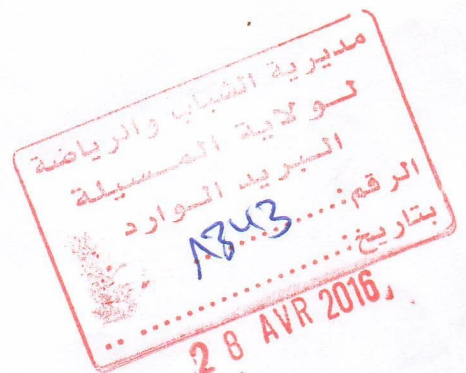 مديرية الشباب والرياضة
لولاية المسيلة
البريد الوارد
الرقم: 1843
بتاريخ:
28 AVR 2016